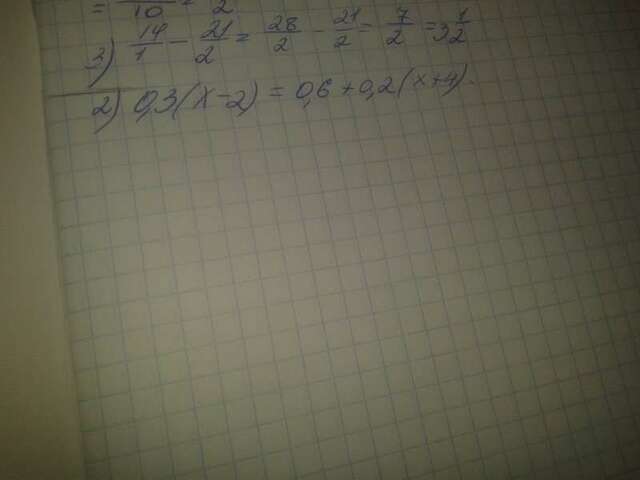 = /10 = /2
3) 14/1 - 21/2 = 28/2 - 21/2 = 7/2 = 3 1/2
2) 0,3(x-2) = 0,6+0,2(x+4).